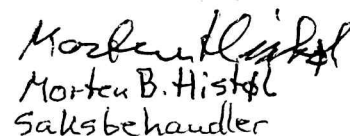 Morten Histøl
Morten B. Histøl
Saksbehandler